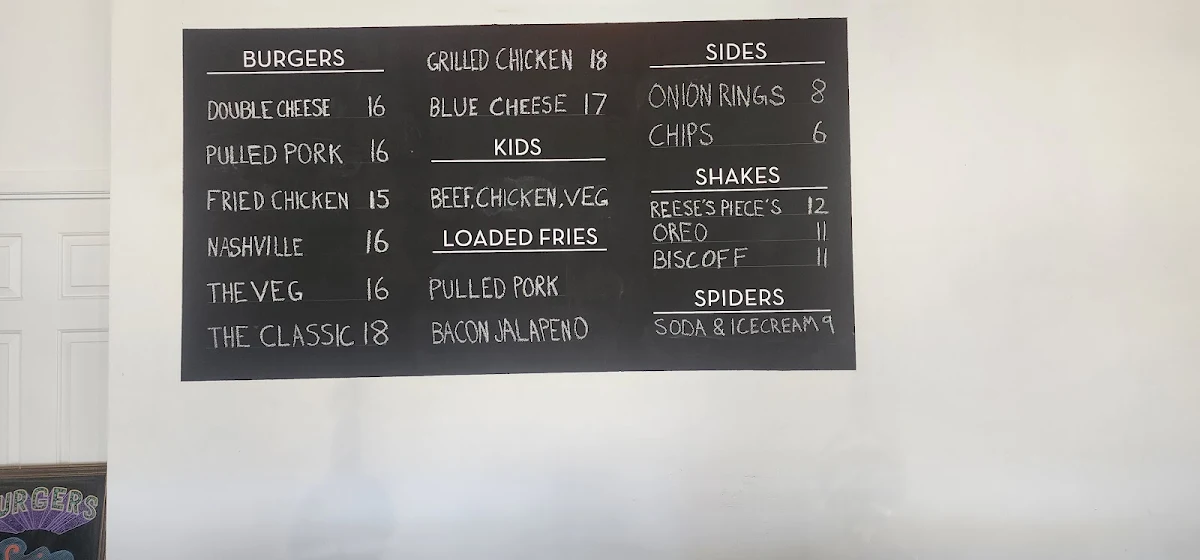 BURGERS
DOUBLE CHEESE 16
PULLED PORK 16
FRIED CHICKEN 15
NASHVILLE 16
THE VEG 16
THE CLASSIC 18
GRILLED CHICKEN 18
BLUE CHEESE 17
KIDS
BEEF, CHICKEN, VEG
LOADED FRIES
PULLED PORK
BACON JALAPENO
SIDES
ONION RINGS 8
CHIPS 6
SHAKES
REESE'S PIECE'S 12
OREO 11
BISCOFF 11
SPIDERS
SODA & ICECREAM 9
URGERS